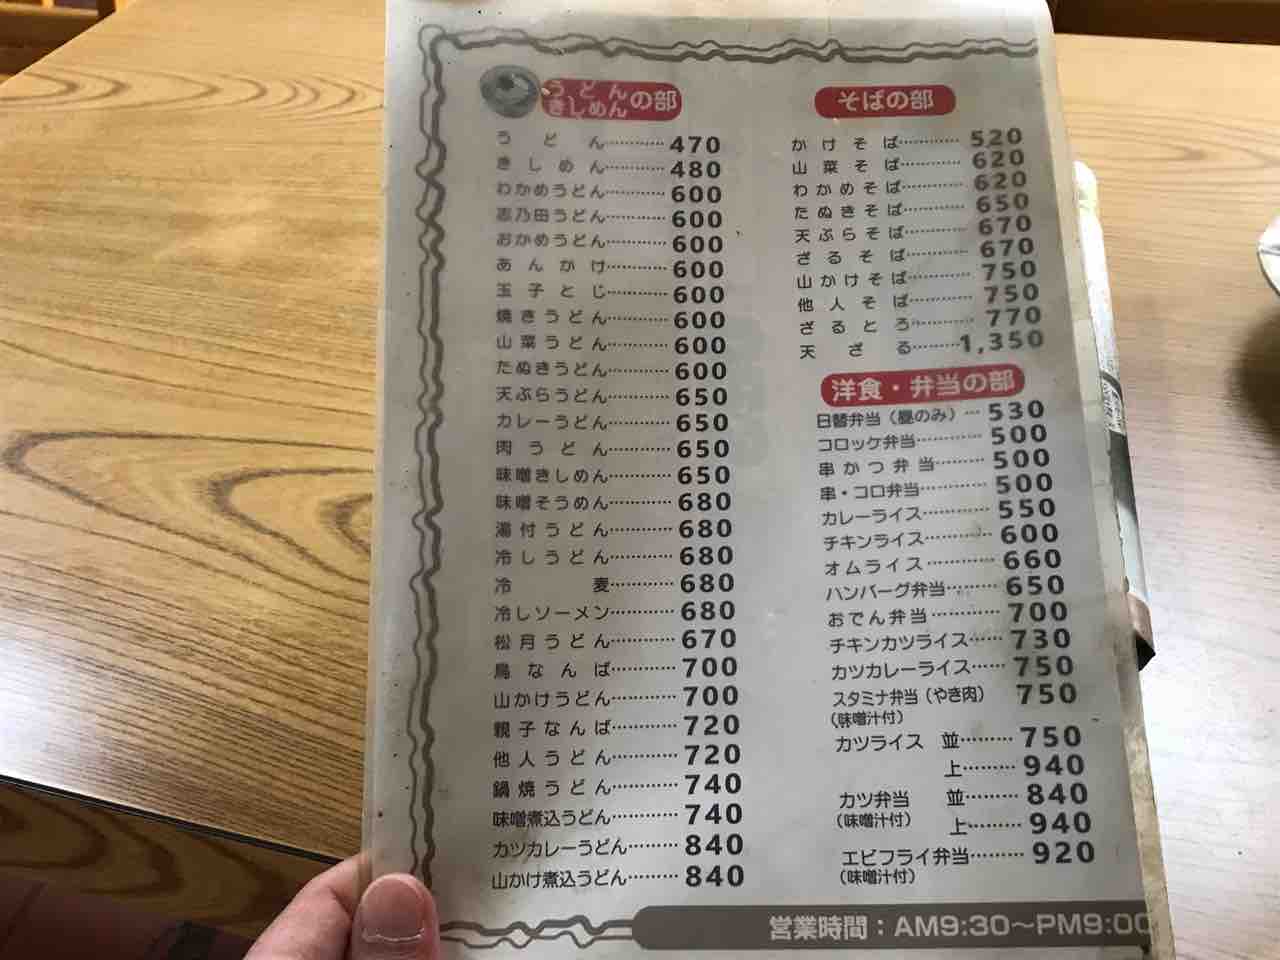 うどん
きしめん の部
うどん………… 470
きしめん………… 480
わかめうどん………… 600
志乃田うどん………… 600
おかめうどん………… 600
あんかけ………… 600
玉子とじ………… 600
焼きうどん………… 600
山菜うどん………… 600
たぬきうどん………… 600
天ぷらうどん………… 650
カレーうどん………… 650
肉うどん………… 650
味噌きしめん………… 650
味噌そうめん………… 680
湯付うどん………… 680
冷しうどん………… 680
冷麦………… 680
冷しソーメン………… 680
松月うどん………… 670
鳥なんば………… 700
山かけうどん………… 700
親子なんば………… 720
他人うどん………… 720
鍋焼うどん………… 740
味噌煮込うどん………… 740
カツカレーうどん……… 840
山かけ煮込うどん……… 840
そばの部
かけそば………… 520
山菜そば………… 620
わかめそば………… 620
たぬきそば………… 650
天ぷらそば………… 670
ざるそば………… 670
山かけそば………… 750
他人そば………… 750
ざるとろ………… 770
天ざる……… 1,350
洋食・弁当の部
日替弁当（昼のみ）… 530
コロッケ弁当………… 500
串かつ弁当……… 500
串・コロ弁当………… 500
カレーライス………… 550
チキンライス………… 600
オムライス………… 660
ハンバーグ弁当……… 650
おでん弁当………… 700
チキンカツライス…… 730
カツカレーライス…… 750
スタミナ弁当（やき肉） 750
（味噌汁付）
カツライス 並……… 750
上……… 940
カツ弁当 並……… 840
（味噌汁付） 上……… 940
エビフライ弁当……… 920
（味噌汁付）
営業時間：AM9:30～PM9:00